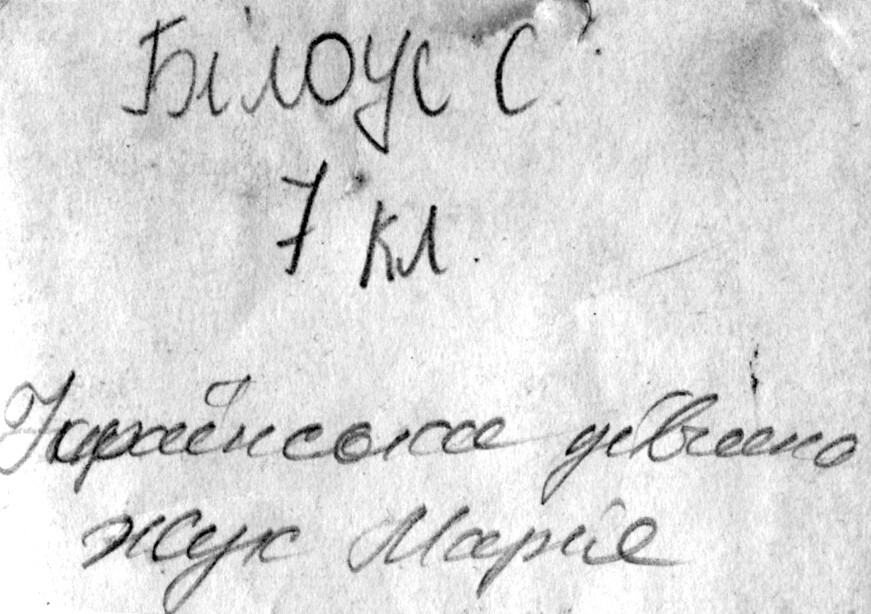 Білоус С.
7 кл.
Українська дівчина
Жук Марія